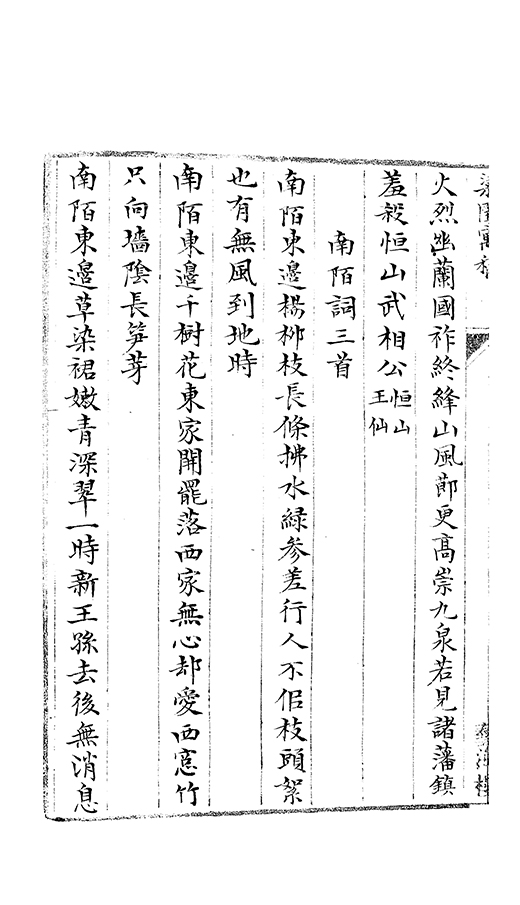 火烈幽蘭國祚終絳山風節更髙崇九泉若見諸藩鎮
羞殺恒山武相公恒山王仙
南陌詞三首
南陌東邉楊柳枝長條拂水緑参差行人不佀枝頭絮
也有無風到地時
南陌東邉千樹花東家開罷落西家無心却愛西窓竹
只向墻隂長笋芽
南陌東邉草染裙嫩青深翠一時新王孫去後無消息